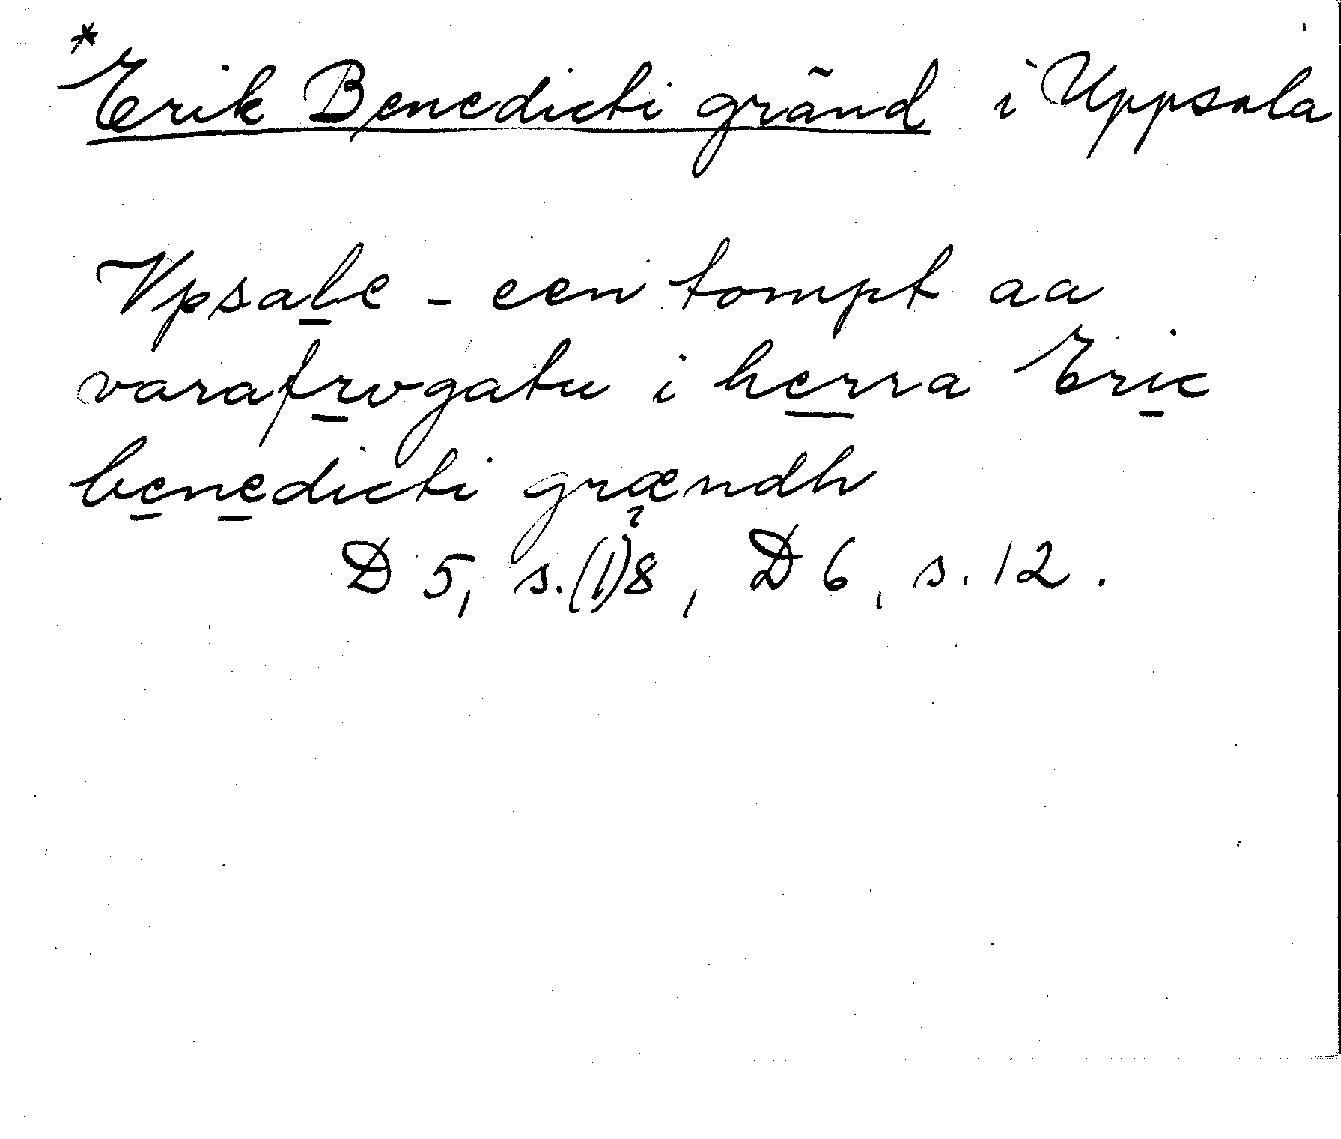 *Erik Benedicti gränd i Uppsala
Vpsale - een tompt aa
varafrvgatu i herra Eric
benedicti grændh
D 5, s.(1)8, D 6, s. 12.